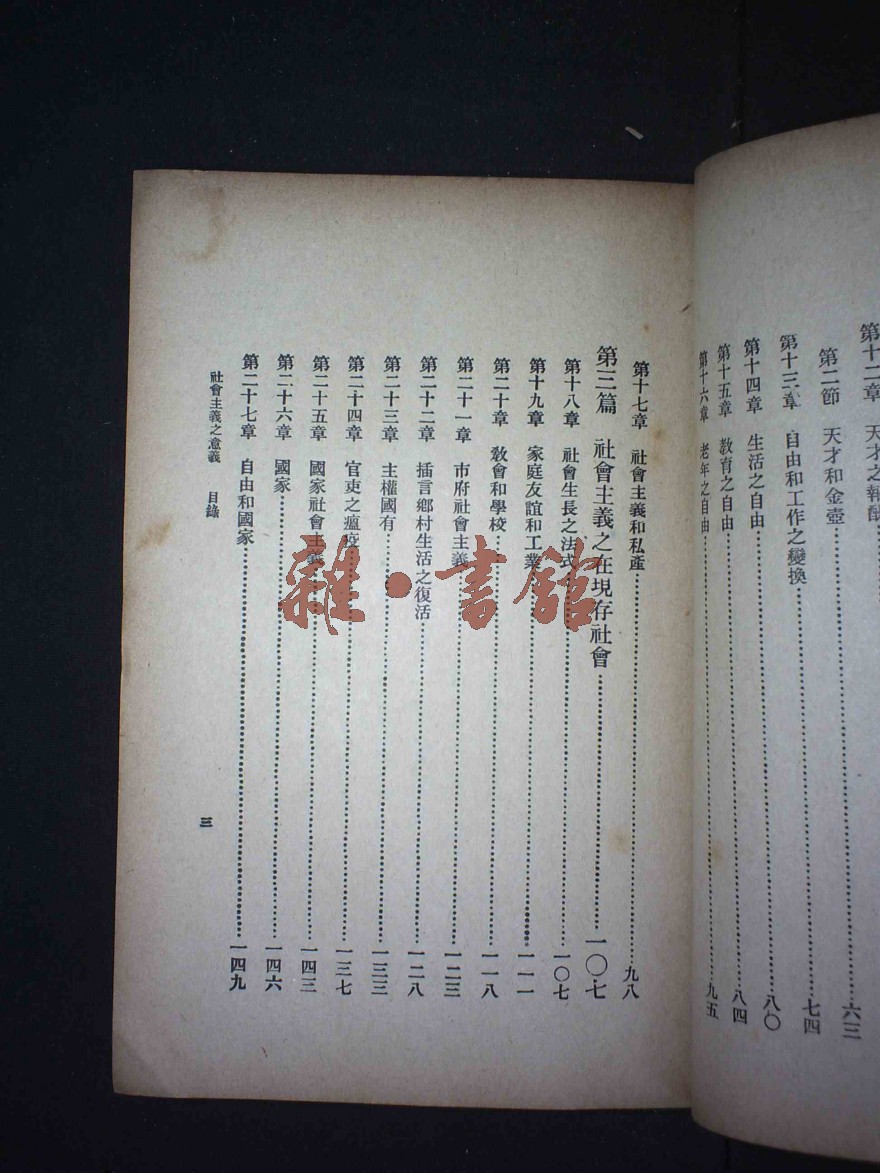 第十二章 天才之報酬
第二節 天才和金壺……六三
第十三章 自由和工作之變換……七四
第十四章 生活之自由……八〇
第十五章 教育之自由……八四
第十六章 老年之自由……九五
第十七章 社會主義和私產……九八
第三篇 社會主義之在現存社會……一〇七
第十八章 社會生長之法式……一〇七
第十九章 家庭友誼和工業……一一一
第二十章 敎會和學校……一一八
第二十一章 市府社會主義……一二三
第二十二章 插言鄉村生活之復活……一二八
第二十三章 主權國有……一三三
第二十四章 官吏之瘟疫……一三七
第二十五章 國家社會主義……一四三
第二十六章 國家……一四六
第二十七章 自由和國家……一四九
社會主義之意義 目錄
三
雜·書館